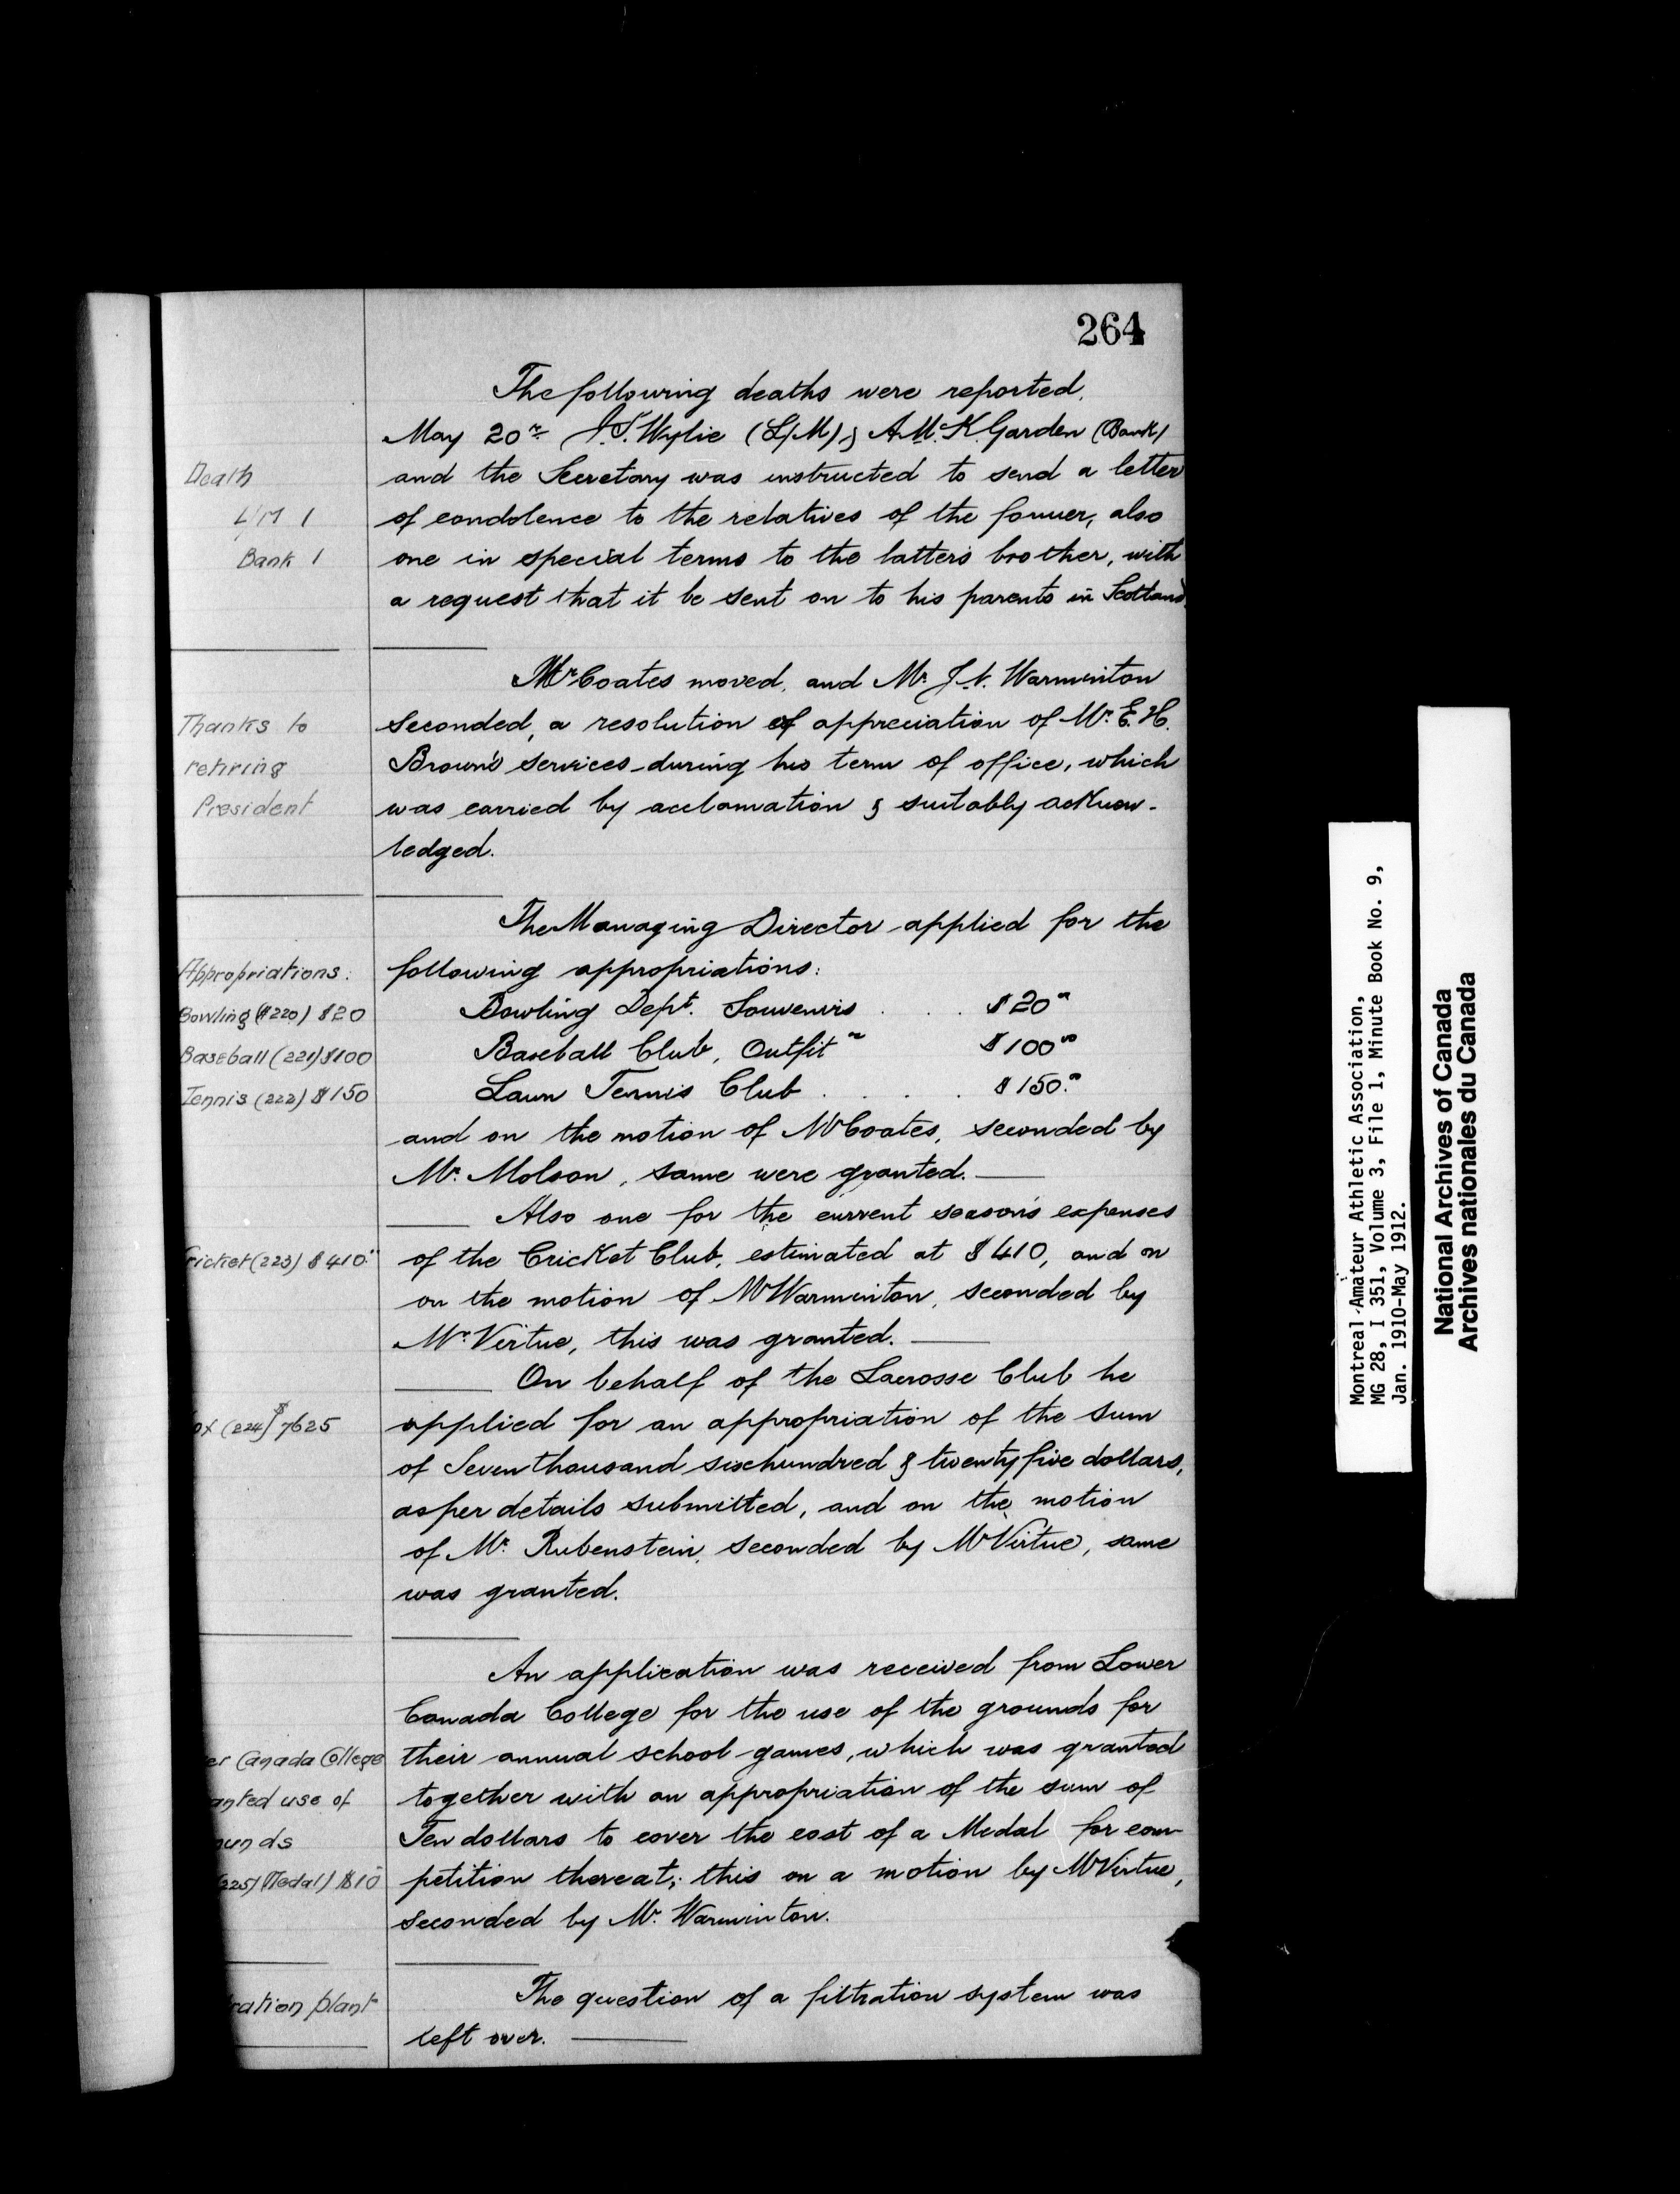 264
The following deaths were reported.
May 20th J.S. Wylie (L/M) & A. McK. Garden (Bank)
Death
and the Secretary was instructed to send a letter
L/M 1
of condolence to the relatives of the former, also
Bank 1
one in special terms to the latter's brother, with
a request that it be sent on to his parents in Scotland.
Mr Coates moved, and Mr. J.N. Warminton
Thanks to
seconded, a resolution of appreciation of Mr. E.H.
retiring
Brown's services during his term of office, which
President
was carried by acclamation & suitably acknow-
ledged.
The Managing Director applied for the
Appropriations:
following appropriations:
Bowling ($220) $20
Bowling Dept. Souvenirs . . . $20.00
Baseball (221) $100
Baseball Club, Outfit " $100.00
Tennis (222) $150
Lawn Tennis Club . . . . $150.00
and on the motion of Mr Coates, seconded by
Mr. Molson, same were granted.
Also one for the current season's expenses
ricket (223) $410.00
of the Cricket Club, estimated at $410, and on
on the motion of Mr Warminton, seconded by
Mr. Virtue, this was granted.
On behalf of the Lacrosse Club he
ox (224) $7625
applied for an appropriation of the sum
of Seven thousand sixhundred & twenty five dollars,
as per details submitted, and on the motion
of Mr. Rubenstein, seconded by Mr Virtue, same
was granted.
An application was received from Lower
Canada College for the use of the grounds for
er Canada College
their annual school games, which was granted
anted use of
together with an appropriation of the sum of
unds
Ten dollars to cover the cost of a Medal for com-
225) (Medal) $10
petition thereat; this on a motion by Mr Virtue,
seconded by Mr. Warminton.
The question of a filtration system was
ration plant
left over.
Montreal Amateur Athletic Association,
MG 28, I 351, Volume 3, File 1, Minute Book No. 9,
Jan. 1910-May 1912.
National Archives of Canada
Archives nationales du Canada